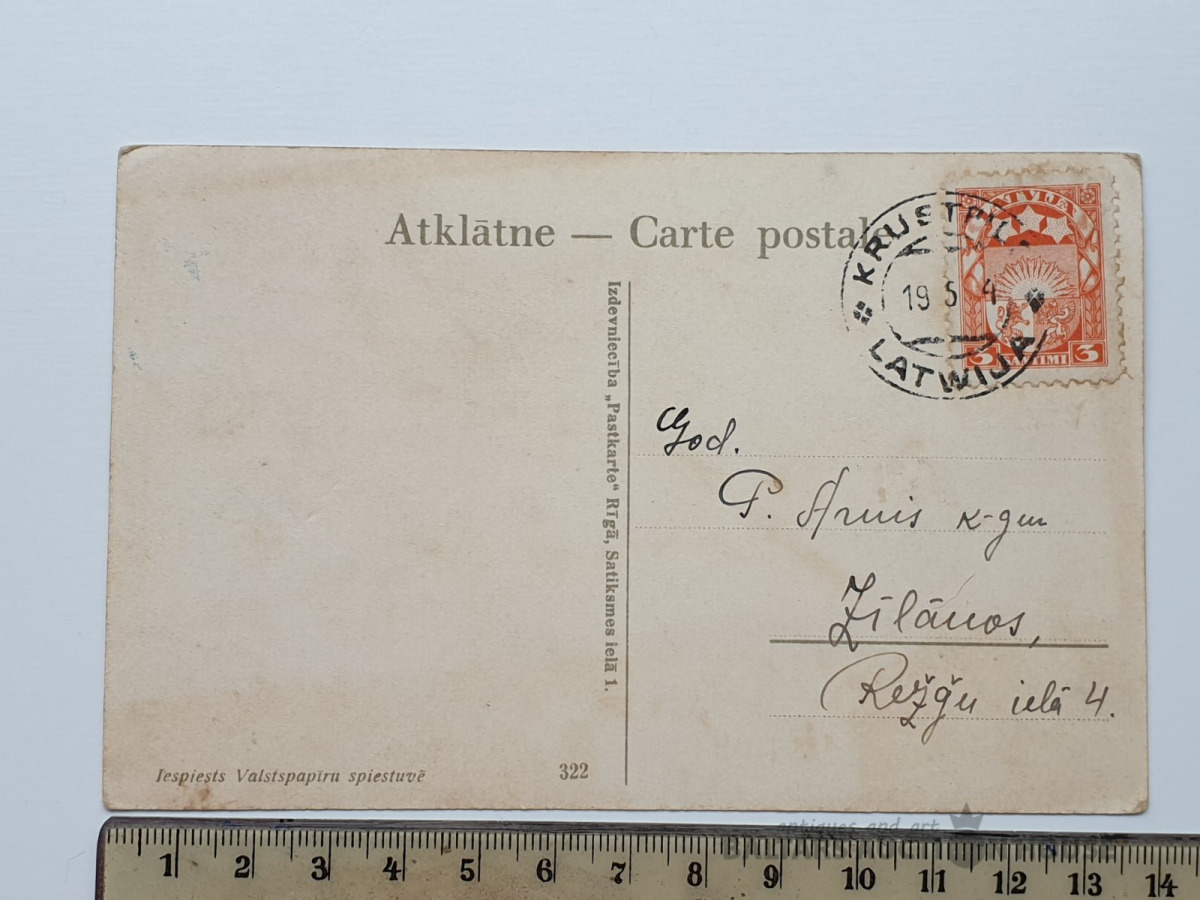 Atklātne — Carte postale
LATVIJA
3 SANTIMI 3
KRUSTPIL
19 5 4
LATWIJA
Izdevniecība „Pastkarte“ Rīgā, Satiksmes ielā 1.
God.
P. k-gm
Zīlānos,
Režģu ielā 4.
Iespiests Valstspapīru spiestuvē
322
antiques and art
1 2 3 4 5 6 7 8 9 10 11 12 13 14